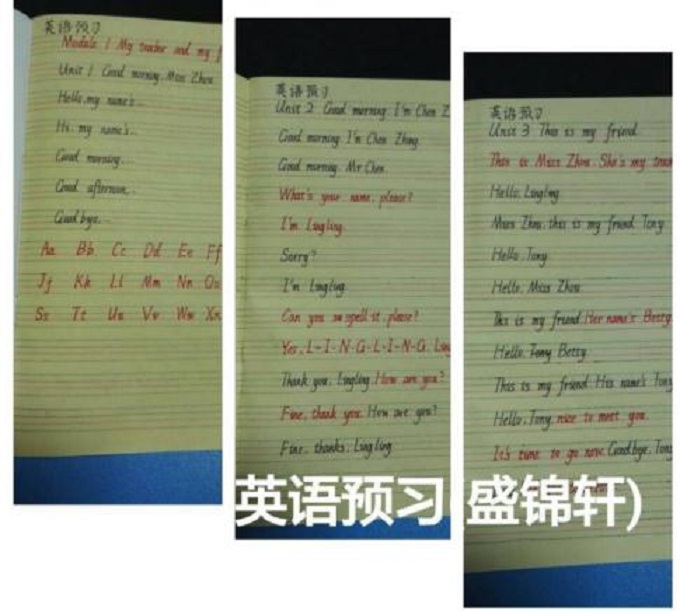 英语预习
Module 1 My teacher and my f
Unit 1 Good morning, Miss Zhou
Hello, my name's...
Hi, my name's...
Good morning...
Good afternoon...
Goodbye...
Aa Bb Cc Dd Ee Ff
Jj Kk Ll Mm Nn Oo
Ss Tt Uu Vv Ww Xx
英语预习
Unit 2 Good morning. I'm Chen Z
Good morning. I'm Chen Zhong
Good morning. Mr Chen
What's your name, please?
I'm Lingling.
Sorry?
I'm Lingling.
Can you spell it, please?
Yes, L-I-N-G-L-I-N-G. Ling
Thank you, Lingling. How are you?
Fine, thank you. How are you?
Fine, thanks. Lingling
英语预习
Unit 3 This is my friend.
This is Miss Zhou. She's my teac
Hello, Lingling
Miss Zhou, this is my friend Tony
Hello, Tony
Hello, Miss Zhou
This is my friend. Her name's Betty
Hello, Tony Betty
This is my friend. His name's Tony
Hello, Tony, nice to meet you.
It's time to go now. Goodbye, Tony
英语预习(盛锦轩)